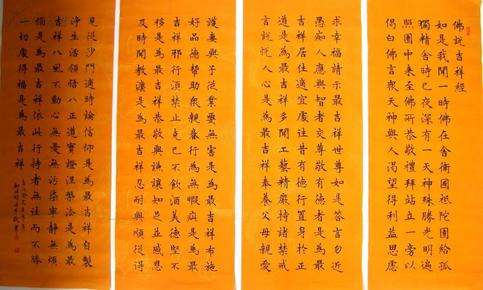 佛說吉祥經
如是我聞一時佛在舍衛國祇陀園給孤
獨精舍時已夜深有一天神殊勝光明遍
照園中來至佛所恭敬禮拜站立一旁以
偈白佛言眾天神與人渴望得利益思慮
求幸福請示最吉祥世尊如是答言勿近
愚痴人應與智者交尊敬有德者是為最
吉祥居住適宜處往昔有德行置身於正
道是為最吉祥多聞工藝精嚴持諸禁戒
言談悅人心是為最吉祥奉養父母親愛
護妻與子從業要無害是為最吉祥布施
好品德幫助眾親眷行為無瑕疵是為最
吉祥邪行須禁止克己不飲酒美德堅不
移是為最吉祥恭敬與謙讓知足並感恩
及時聞教法是為最吉祥忍耐與順從得
見眾沙門適時論信仰是為最吉祥自制
淨生活領悟八正道實證涅槃法是為最
吉祥八風不動心無憂無污染寧靜無煩
惱是為最吉祥依此行持者無往而不勝
一切處得福是為最吉祥